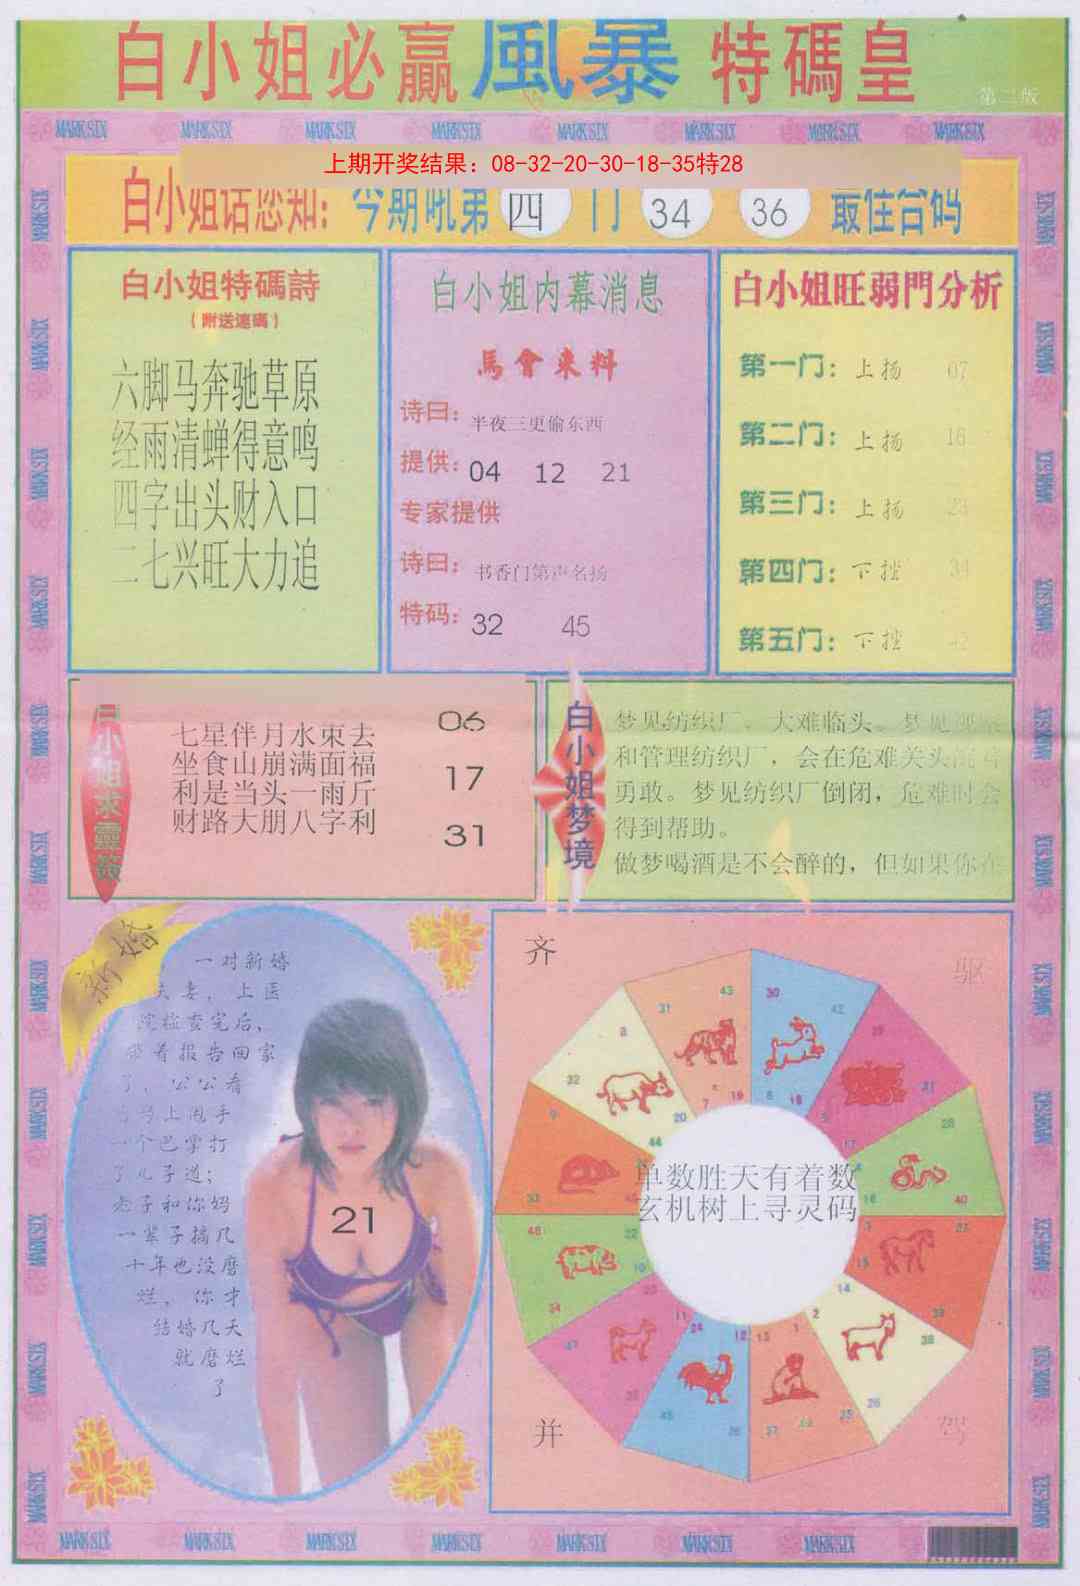 白小姐必赢風暴特碼皇
第二版
MARK SIX MARK SIX MARK SIX MARK SIX MARK SIX MARK SIX MARK SIX MARK SIX
上期开奖结果：08-32-20-30-18-35特28
白小姐话您知：今期吼第四门 34 36 最佳合码
白小姐特碼詩
（附送速碼）
六脚马奔驰草原
经雨清蝉得意鸣
四字出头财入口
二七兴旺大力追
白小姐内幕消息
馬會来料
诗曰：半夜三更偷东西
提供：04 12 21
专家提供
诗曰：书香门第声名扬
特码：32 45
白小姐旺弱門分析
第一门：上扬 07
第二门：上扬 16
第三门：上扬 23
第四门：下挫 34
第五门：下挫
白小姐求靈簽
七星伴月水東去
坐食山崩满面福
利是当头一雨斤
财路大朋八字利
06
17
31
白小姐梦境
梦见纺织厂、大难临头。梦见
和管理纺织厂，会在危难关头
勇敢。梦见纺织厂倒闭，危难时会
得到帮助。
做梦喝酒是不会醉的，但如果你在
新婚
一对新婚
夫妻，上医
院检查完后，
带着报告回家
了，公公看
马上甩手
一个巴掌打
了儿子道；
老子和你妈
一辈子搞几
十年也没磨
烂，你才
结婚几天
就磨烂
了
21
齐
驱
并
驾
单数胜天有着数
玄机树上寻灵码
MARK SIX MARK SIX MARK SIX MARK SIX MARK SIX MARK SIX MARK SIX